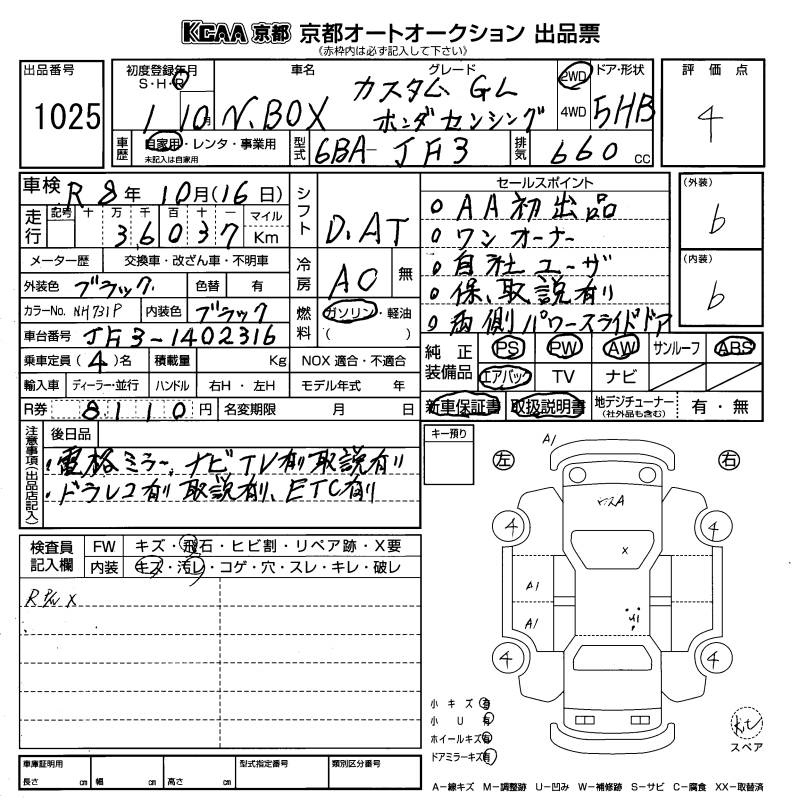 KCAA 京都 京都オートオークション 出品票
(赤枠内は必ず記入して下さい)
出品番号 初度登録年月 車名 グレード ドア・形状 評価点
S・H・R カスタム GL 2WD
1025 1 10月 N.BOX ホンダセンシング 4WD 5HB 4
車歴 自家用・レンタ・事業用 型式 6BA-JF3 排気 660 cc
未記入は自家用
車検 R 8年 10月(16日) シフト D.AT セールスポイント (外装)
走行 記号 十 万 千 百 十 一 マイル ・AA初出品 b
36037 Km ・ワンオーナー
メーター歴 交換車・改ざん車・不明車 冷房 AC 無 ・自社ユーザ (内装)
外装色 ブラック 色替 有 ・保、取説有り b
カラーNo. NH731P 内装色 ブラック 燃料 ガソリン・軽油 ( ) ・両側パワースライドドア
車台番号 JF3-1402316
乗車定員(4)名 積載量 Kg NOX 適合・不適合 純正装備品 PS PW AW サンルーフ ABS
輸入車 ディーラー・並行 ハンドル 右H・左H モデル年式 年 エアバック TV ナビ
R券 8110円 名変期限 月 日 新車保証書 取扱説明書 地デジチューナー (社外品も含む) 有・無
注意事項(出品店記入) 後日品 キー預り
・電格ミラー、ナビTV有り取説有り
・ドラレコ有り 取説有り、ETC有り
A1
左 右
4 4
検査員記入欄 FW キズ・飛石・ヒビ割・リペア跡・X要
内装 キズ・汚レ・コゲ・穴・スレ・キレ・破レ
X
A1
A1 U1
4 4
小キズ 有
小U 有
ホイールキズ 有
ドアミラーキズ 有
スペア
車庫証明用 型式指定番号 類別区分番号
長さ cm 幅 cm 高さ cm
A-線キズ M-調整跡 U-凹み W-補修跡 S-サビ C-腐食 XX-取替済